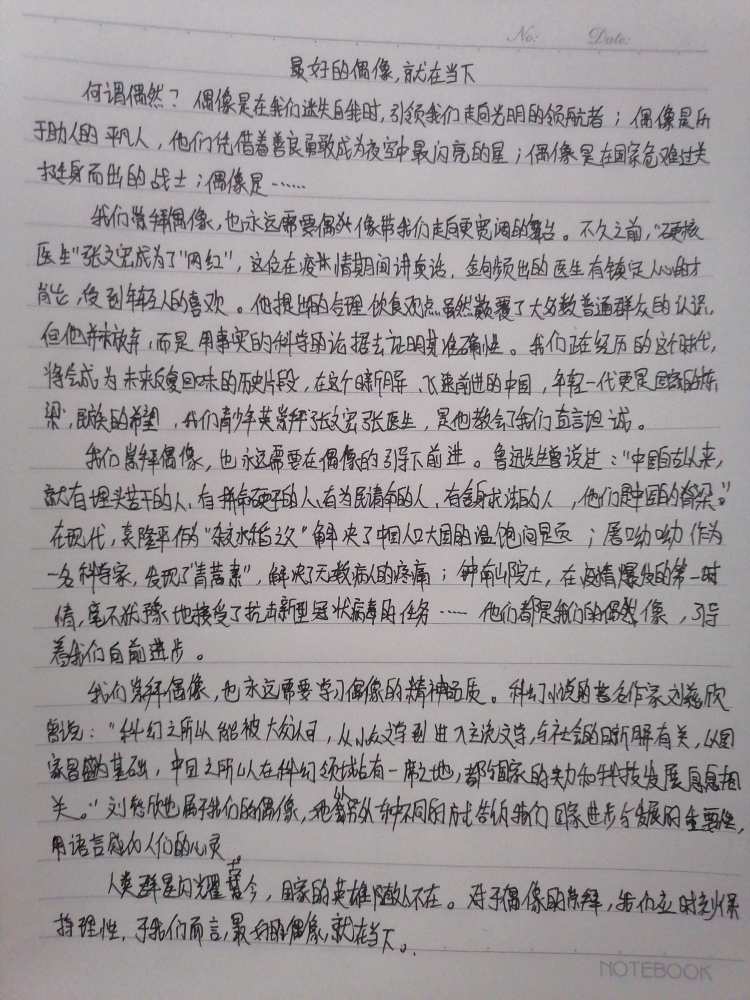 No: Date:
最好的偶像,就在当下
何谓偶然？偶像是在我们迷失自我时,引领我们走向光明的领航者；偶像是乐
于助人的平凡人，他们凭借着善良勇敢成为夜空中最闪亮的星；偶像是在国家危难过关
挺身而出的战士；偶像是……
我们崇拜偶像,也永远需要偶像带我们走向更宽阔的舞台。不久之前,"硬核
医生"张文宏成为了"网红"，这位在疫情期间讲真话，金句频出的医生有镇定人心的才
能,受到年轻人的喜欢。他提出的合理饮食观点虽然颠覆了大多数普通群众的认识,
但他并未放弃,而是用事实的科学的论据去证明其准确性。我们正在经历的这个时代,
将会成为未来反复回味的历史片段,在这个日新月异、飞速前进的中国，年轻一代更是国家的栋
梁,民族的希望，我们青少年英崇拜张文宏张医生，是他教会了我们直言坦诚。
我们崇拜偶像，也永远需要在偶像的引导下前进。鲁迅先生曾说过："中国自古以来,
就有埋头苦干的人,有拼命硬干的人,有为民请命的人，有舍身求法的人，他们是中国的脊梁。"
在现代，袁隆平作为"杂交水稻之父"解决了中国人口大国的温饱问题；屠呦呦作为
一名科学家，发现了"青蒿素"，解决了无数病人的疼痛；钟南山院士，在疫情爆发的第一时
情,毫不犹豫地接受了抗击新型冠状病毒的任务……他们都是我们的偶像，引导
着我们向前进步。
我们崇拜偶像，也永远需要学习偶像的精神品质。科幻小说的著名作家刘慈欣
曾说："科幻之所以能被大众认可，从小众文学到进入主流文学,与社会的日新月异有关，以国
家昌盛为基础，中国之所以在科幻领域占有一席之地，都与国家的实力和科技发展息息相
关。"刘慈欣也属于我们的偶像,他曾努力以种不同的方式告诉我们国家进步与发展的重要性,
用语言感动人们的心灵
人类群星闪耀古今，国家的英雄无处不在。对于偶像的崇拜，我们应时刻保
持理性，于我们而言,最好的偶像,就在当下。
NOTEBOOK